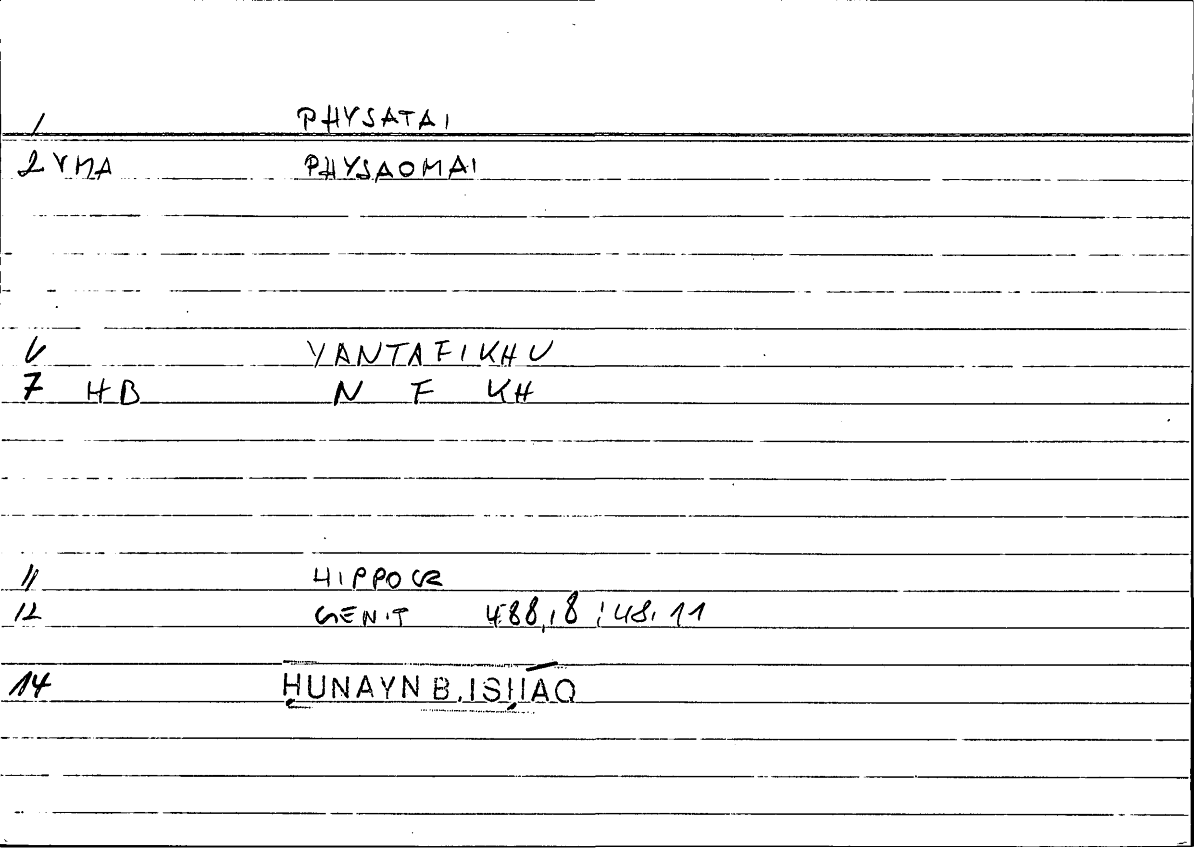 1 PHYSATAI
2 VMA PHYSAOMAI
6 YANTAFIKHU
7 HB N F KH
11 HIPPOCR
12 GENIT 488,8 ; 48, 11
14 ḤUNAYN B. ISḤĀQ